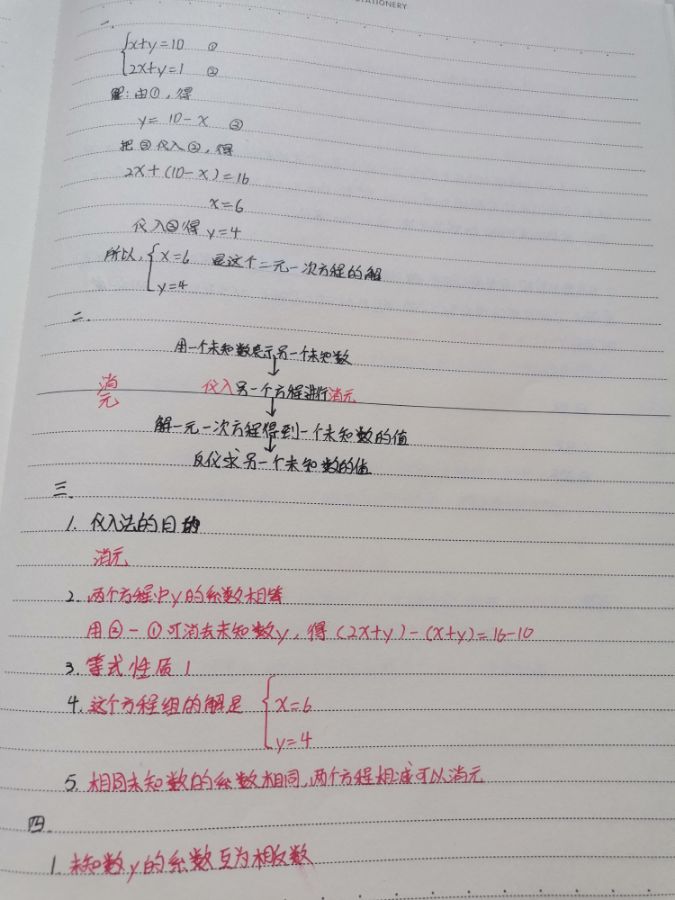 STATIONERY
一.
{x+y=10 ①
2x+y=1 ②
解:由①,得
y=10-x ③
把③代入②,得
2x+(10-x)=16
x=6
代入③得 y=4
所以,{x=6 是这个二元一次方程的解
y=4
二.
用一个未知数表示另一个未知数
↓
消元 代入另一个方程进行消元
↓
解一元一次方程得到一个未知数的值
↓
反代求另一个未知数的值
三.
1. 代入法的目的
消元
2. 两个方程中y的系数相等
用②-①可消去未知数y,得(2x+y)-(x+y)=16-10
3. 等式性质1
4. 这个方程组的解是{x=6
y=4
5. 相同未知数的系数相同,两个方程相减可以消元
四.
1. 未知数y的系数互为相反数